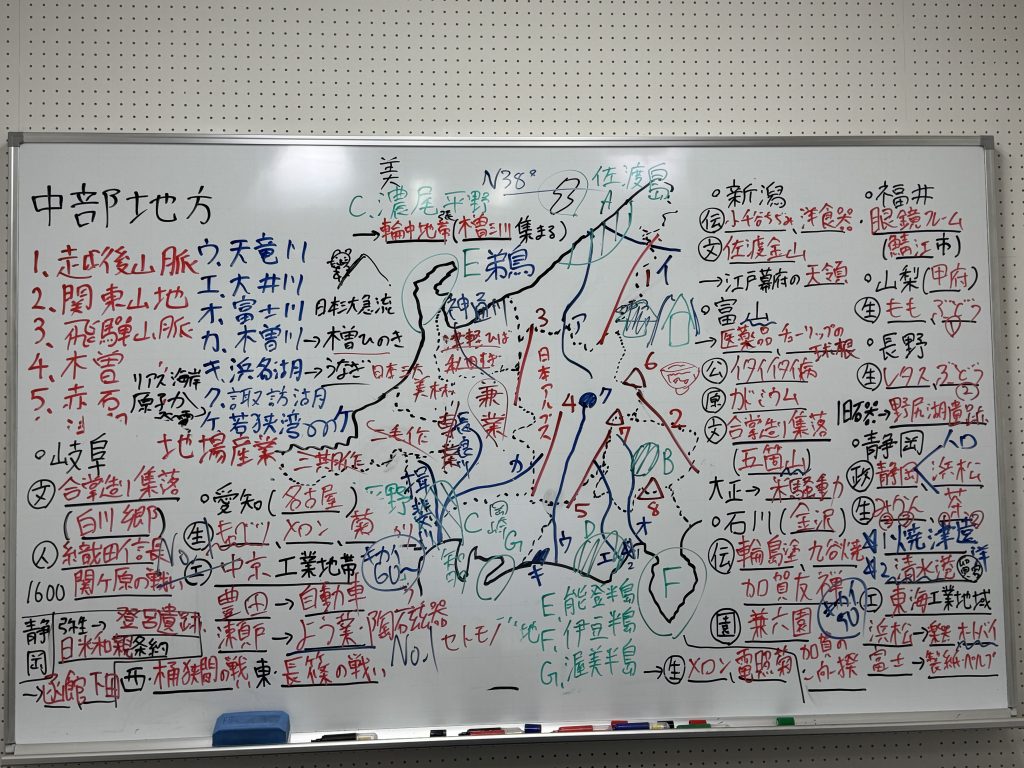 中部地方
1. 越後山脈
2. 関東山地
3. 飛騨山脈
4. 木曽
5. 赤石
ウ. 天竜川
エ. 大井川
オ. 富士川
カ. 木曽川→木曽ひのき
キ. 浜名湖→うなぎ
ク. 諏訪湖
ケ. 若狭湾
リアス海岸
原子力
地場産業
日本三大急流
日本三大
美林
美
C. 濃尾平野
→輪中地帯(木曽三川集まる)
N38°
佐渡島
A
イ
E
鵜
神通川
ア
3
日本アルプス
1
6
2
4
ク
7
5
8
B
兼業
二毛作
二期作
長良川
揖斐
カ
C
G
D
キ
ウ
エ
オ
F
E. 能登半島
F. 伊豆半島
G. 渥美半島
→生 メロン、電照菊
。岐阜
文 合掌造り集落
(白川郷)
人 織田信長
1600 関ヶ原の戦い
静岡
弥生→登呂遺跡
日米和親条約
→函館 下田
西・桶狭間の戦い、東・長篠の戦い
。愛知(名古屋)
生 キャベツ メロン、菊
工 中京工業地帯
豊田→自動車
瀬戸→よう業 陶石磁器
No.1
セトモノ
。新潟
伝 小千谷ちぢみ、洋食器
文 佐渡金山
→江戸幕府の天領
。富山
→医薬品 チューリップの球根
公 イタイイタイ病
原 カドミウム
文 合掌造り集落
(五箇山)
大正→米騒動
。石川(金沢)
伝 輪島塗、九谷焼
加賀友禅
園 兼六園
加賀の
一向一揆
。福井
眼鏡フレーム
(鯖江市)
。山梨(甲府)
生 もも、ぶどう
。長野
生 レタス、ぶどう
旧石器→野尻湖遺跡
。静岡
人口
政 静岡 浜松
生 みかん 茶
1 焼津港
2 清水港
工 東海工業地域
浜松→楽器 オートバイ
富士→製紙・パルプ